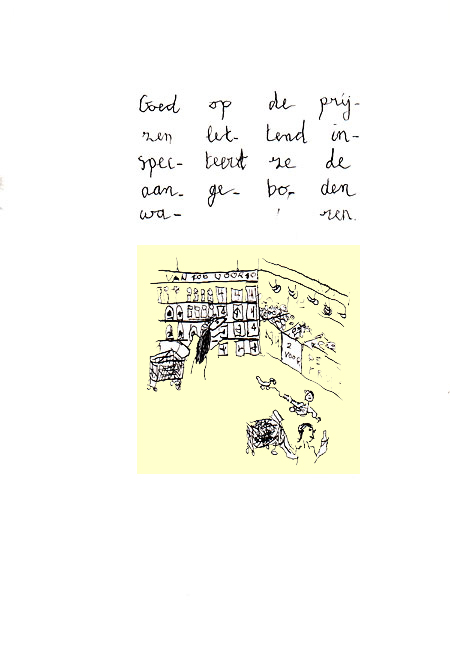 Goed op de prij-
zen let- tend in-
spec- teert ze de
aan- ge- bo- den
wa- ren.
VAN 
2
VOOR